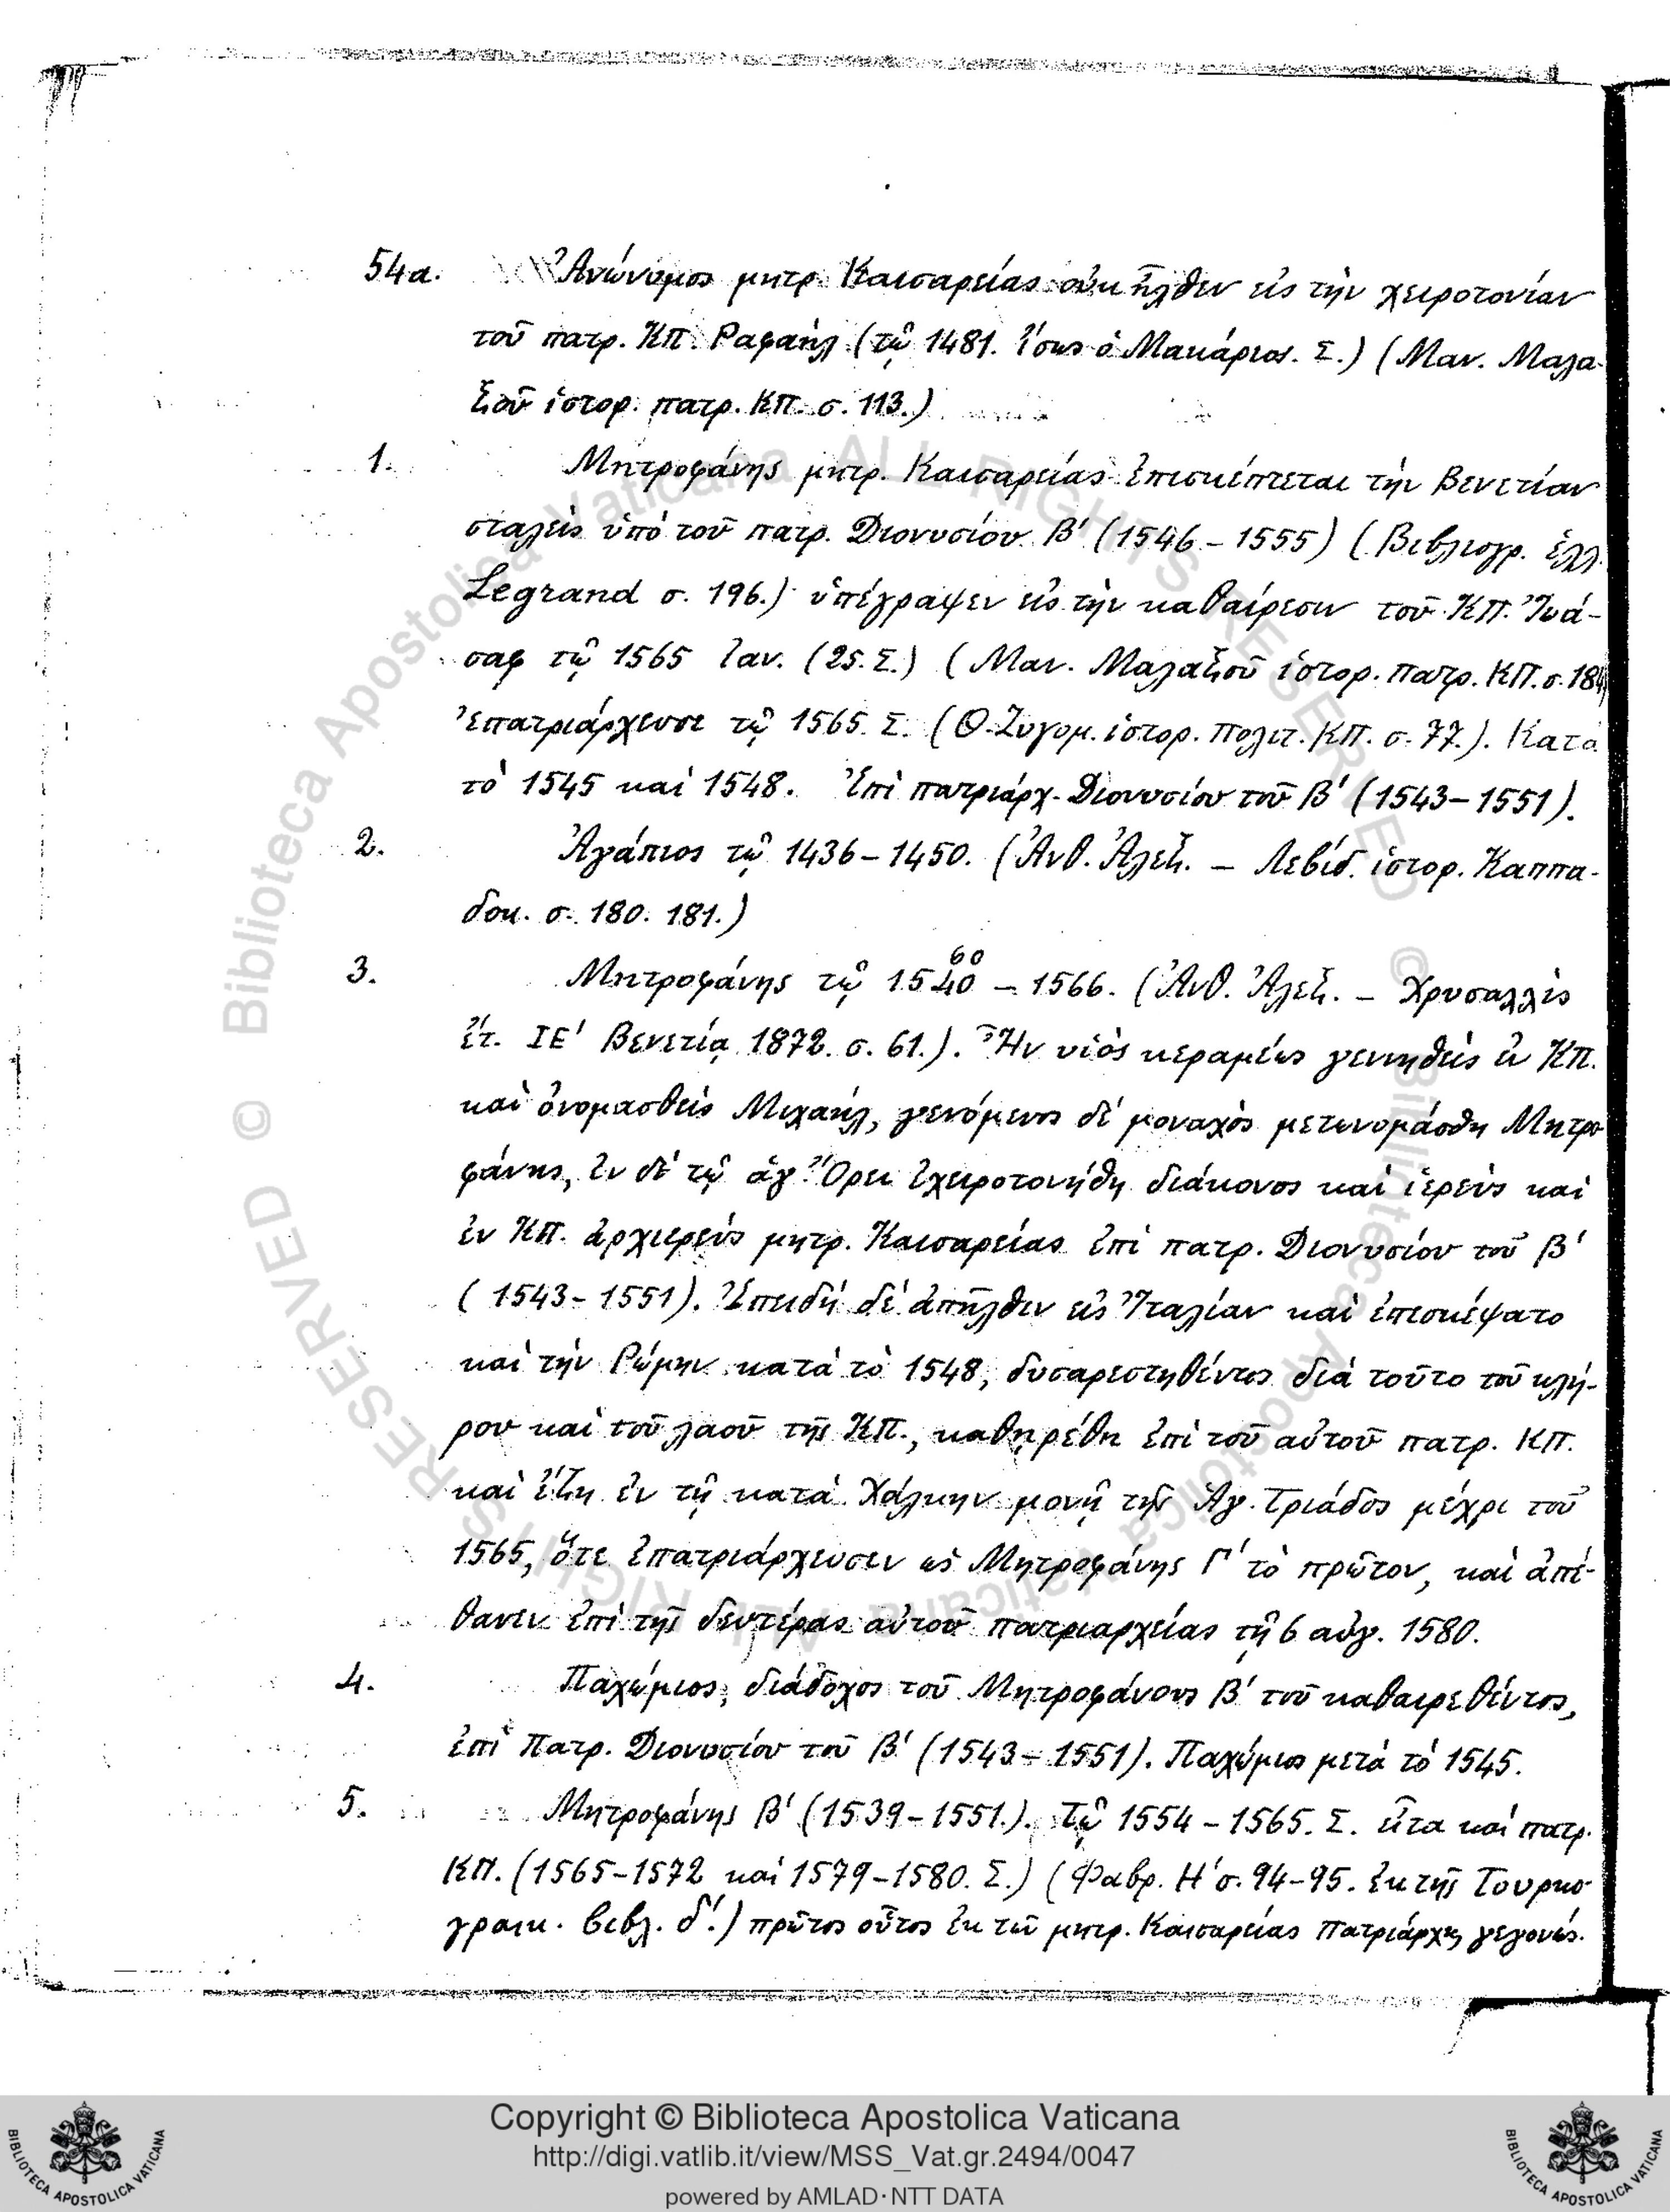 54α. Ἀνώνυμος μητρ. Καισαρείας οὐκ ἦλθεν εἰς τὴν χειροτονίαν
τοῦ πατρ. ΚΠ. Ραφαὴλ (τῷ 1481. ἴσως ὁ Μακάριος. Σ.) (Μαν. Μαλα-
ξοῦ ἱστορ. πατρ. ΚΠ. σ. 113.)
1. Μητροφάνης μητρ. Καισαρείας ἐπισκέπτεται τὴν Βενετίαν
σταλεὶς ὑπὸ τοῦ πατρ. Διονυσίου Β' (1546 – 1555) (Βιβλιογρ. ἑλλ.
Legrand σ. 196.) ὑπέγραψεν εἰς τὴν καθαίρεσιν τοῦ ΚΠ. Ἰωά-
σαφ τῷ 1565 ἰαν. (25. Σ.) (Μαν. Μαλαξοῦ ἱστορ. πατρ. ΚΠ. σ.
Ἐπατριάρχευσε τῷ 1565. Σ. (Θ. Ζυγομ. ἱστορ. πολιτ. ΚΠ. σ. 77.). Κατὰ
τὸ 1545 καὶ 1548. Ἐπὶ πατριάρχ. Διονυσίου τοῦ Β' (1543–1551).
2. Ἀγάπιος τῷ 1436–1450. (Ἀνθ. Ἀλεξ. – Λεβίδ. ἱστορ. Καππα-
δοκ. σ. 180. 181.)
60
3. Μητροφάνης τῷ 1540 – 1566. (Ἀνθ. Ἀλεξ. – Χρυσαλλὶς
ἔτ. ΙΕ' Βενετία 1872. σ. 61.). Ἦν υἱὸς κεραμέως γεννηθεὶς ἐν ΚΠ.
καὶ ὀνομασθεὶς Μιχαήλ, γενόμενος δὲ μοναχὸς μετωνομάσθη Μητρο-
φάνης, ἐν δὲ τῷ ἁγ. Ὄρει ἐχειροτονήθη διάκονος καὶ ἱερεὺς καὶ
ἐν ΚΠ. ἀρχιερεὺς μητρ. Καισαρείας ἐπὶ πατρ. Διονυσίου τοῦ Β'
(1543–1551). Ἐπειδὴ δὲ ἀπῆλθεν εἰς Ἰταλίαν καὶ ἐπεσκέψατο
καὶ τὴν Ρώμην κατὰ τὸ 1548, δυσαρεστηθέντος διὰ τοῦτο τοῦ κλή-
ρου καὶ τοῦ λαοῦ τῆς ΚΠ., καθῃρέθη ἐπὶ τοῦ αὐτοῦ πατρ. ΚΠ.
καὶ ἔζη ἐν τῇ κατὰ Χάλκην μονῇ τῆς Ἁγ. Τριάδος μέχρι τοῦ
1565, ὅτε ἐπατριάρχευσεν ὡς Μητροφάνης Γ' τὸ πρῶτον, καὶ ἀπέ-
θανεν ἐπὶ τῆς δευτέρας αὐτοῦ πατριαρχείας τῇ 6 αὐγ. 1580.
4. Παχώμιος, διάδοχος τοῦ Μητροφάνους Β' τοῦ καθαιρεθέντος,
ἐπὶ Πατρ. Διονυσίου τοῦ Β' (1543–1551). Παχώμιος μετὰ τὸ 1545.
5. Μητροφάνης Β' (1539–1551.). Τῷ 1554 – 1565. Σ. εἶτα καὶ πατρ.
ΚΠ. (1565–1572 καὶ 1579–1580. Σ.) (Φαβρ. Η' σ. 94–95. ἐκ τῆς Τουρκο-
γραικ. βιβλ. δ'.) πρῶτος οὗτος ἐκ τῶν μητρ. Καισαρείας πατριάρχης γεγονώς.
© Biblioteca Apostolica Vaticana ALL RIGHTS RESERVED
Copyright © Biblioteca Apostolica Vaticana
http://digi.vatlib.it/view/MSS_Vat.gr.2494/0047
powered by AMLAD·NTT DATA
BIBLIOTECA APOSTOLICA VATICANA
BIBLIOTECA APOSTOLICA VATICANA